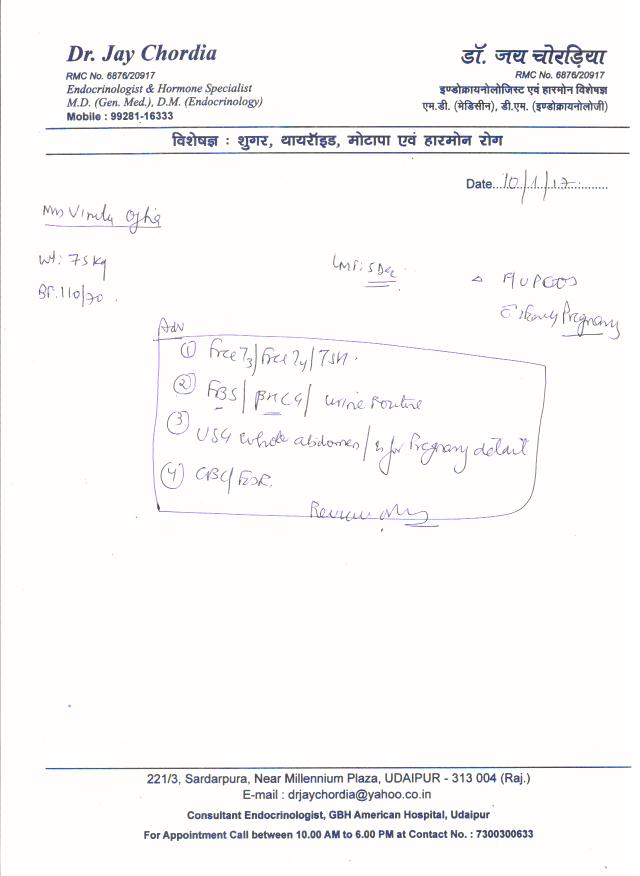 Dr. Jay Chordia
RMC No. 6876/20917
Endocrinologist & Hormone Specialist
M.D. (Gen. Med.), D.M. (Endocrinology)
Mobile : 99281-16333
डॉ. जय चोरड़िया
RMC No. 6876/20917
इण्डोक्रायनोलोजिस्ट एवं हारमोन विशेषज्ञ
एम.डी. (मेडिसीन), डी.एम. (इण्डोक्रायनोलोजी)
विशेषज्ञ : शुगर, थायरॉइड, मोटापा एवं हारमोन रोग
Date...10/1/17...........
Mrs Vinita Ojha
Wt: 75 Kg
BP. 110/70.
LMP: 5 Dec
Δ PCOS
Pregnancy
Adv
① Free T3/Free T4/TSH.
② FBS/ BHCG/ Urine Routine
③ USG whole abdomen/ for Pregnancy detail
④ CBC/ESR.
Review
221/3, Sardarpura, Near Millennium Plaza, UDAIPUR - 313 004 (Raj.)
E-mail : drjaychordia@yahoo.co.in
Consultant Endocrinologist, GBH American Hospital, Udaipur
For Appointment Call between 10.00 AM to 6.00 PM at Contact No. : 7300300633